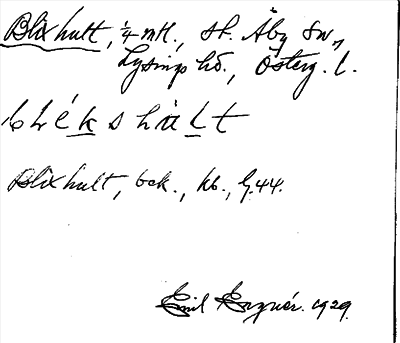 Blixhult, 1/4 mtl., St. Åby sn,
Lysings hd., Österg. l.
blékshùlt
Blixhult, bek., kb., G.44.
Emil 1929.